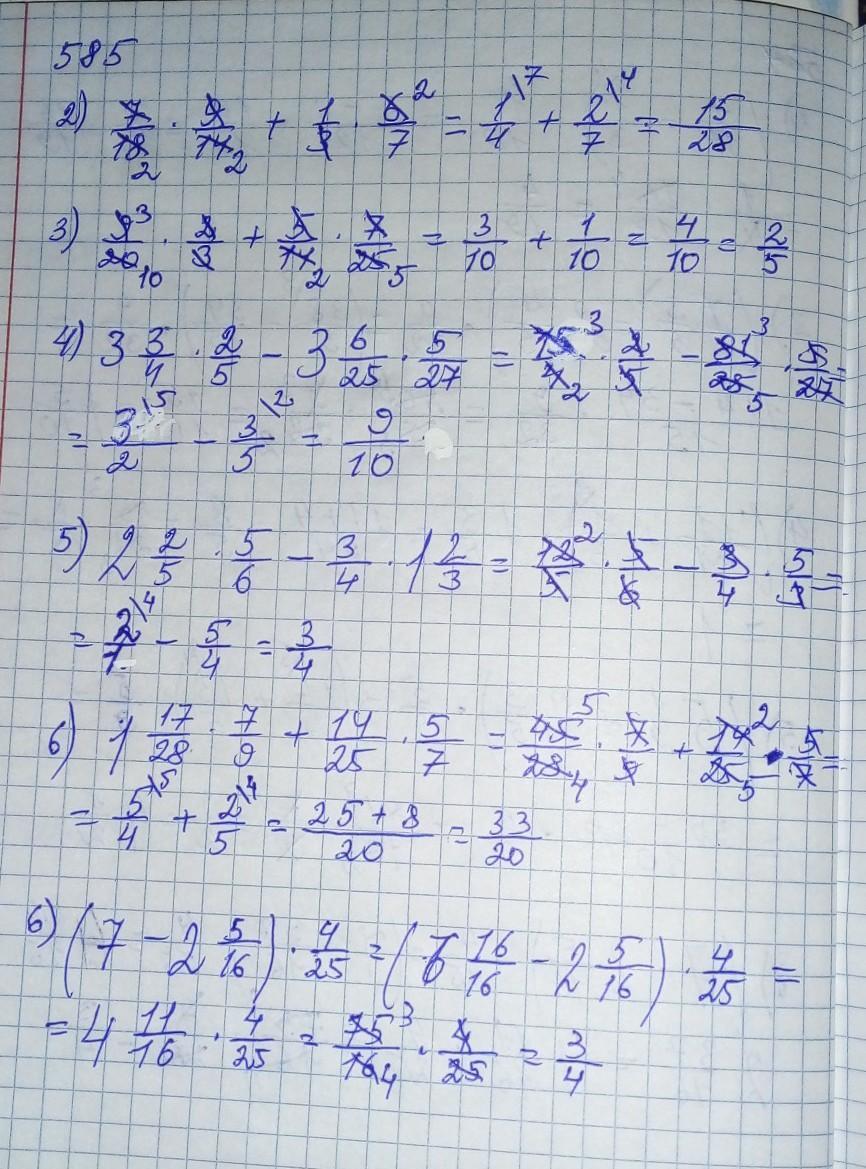 585
2) 7/18 2 · 9/14 2 + 1/3 · 6/7 2 = 1/4 \7 + 2/7 \4 = 15/28
3) 9/20 3 10 · 2/3 + 5/14 2 · 7/25 5 = 3/10 + 1/10 = 4/10 = 2/5
4) 3 3/4 · 2/5 - 3 6/25 · 5/27 = 15/4 3 2 · 2/5 - 81/25 3 5 · 5/27 =
= 3/2 \5 - 3/5 \2 = 9/10
5) 2 2/5 · 5/6 - 3/4 · 1 2/3 = 12/5 2 · 5/6 - 3/4 · 5/3 =
= 2/1 \4 - 5/4 = 3/4
6) 1 17/28 · 7/9 + 14/25 · 5/7 = 45/28 5 4 · 7/9 + 14/25 2 5 · 5/7 =
= 5/4 \5 + 2/5 \4 = 25+8/20 = 33/20
6) (7 - 2 5/16) · 4/25 = (6 16/16 - 2 5/16) · 4/25 =
= 4 11/16 · 4/25 = 75/16 3 4 · 4/25 = 3/4